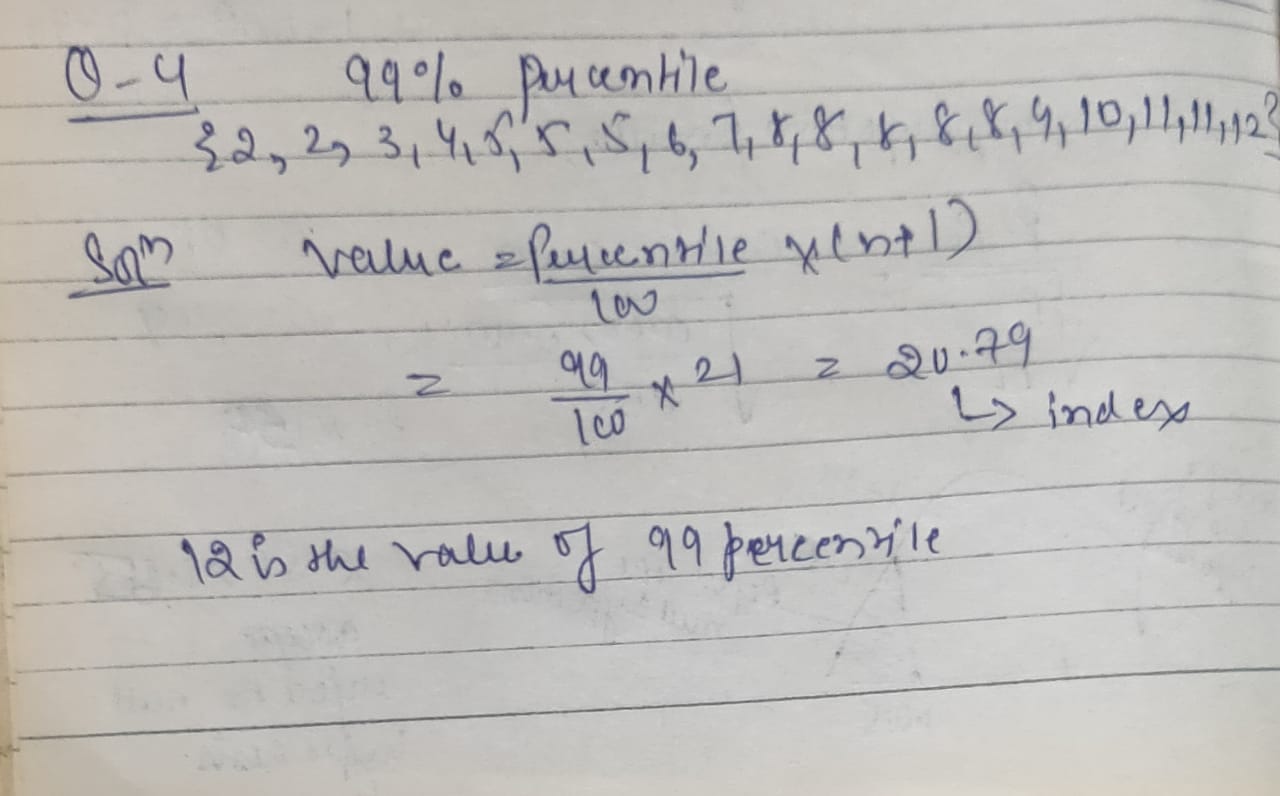 Q-4 99% percentile
{2, 2, 3, 4, 5, 5, 5, 6, 7, 8, 8, 8, 8, 8, 9, 10, 11, 11, 12}
Solⁿ value = Percentile x (n+1)
100
= 99 x 21 = 20.79
100
↳ index
12 is the value of 99 percentile